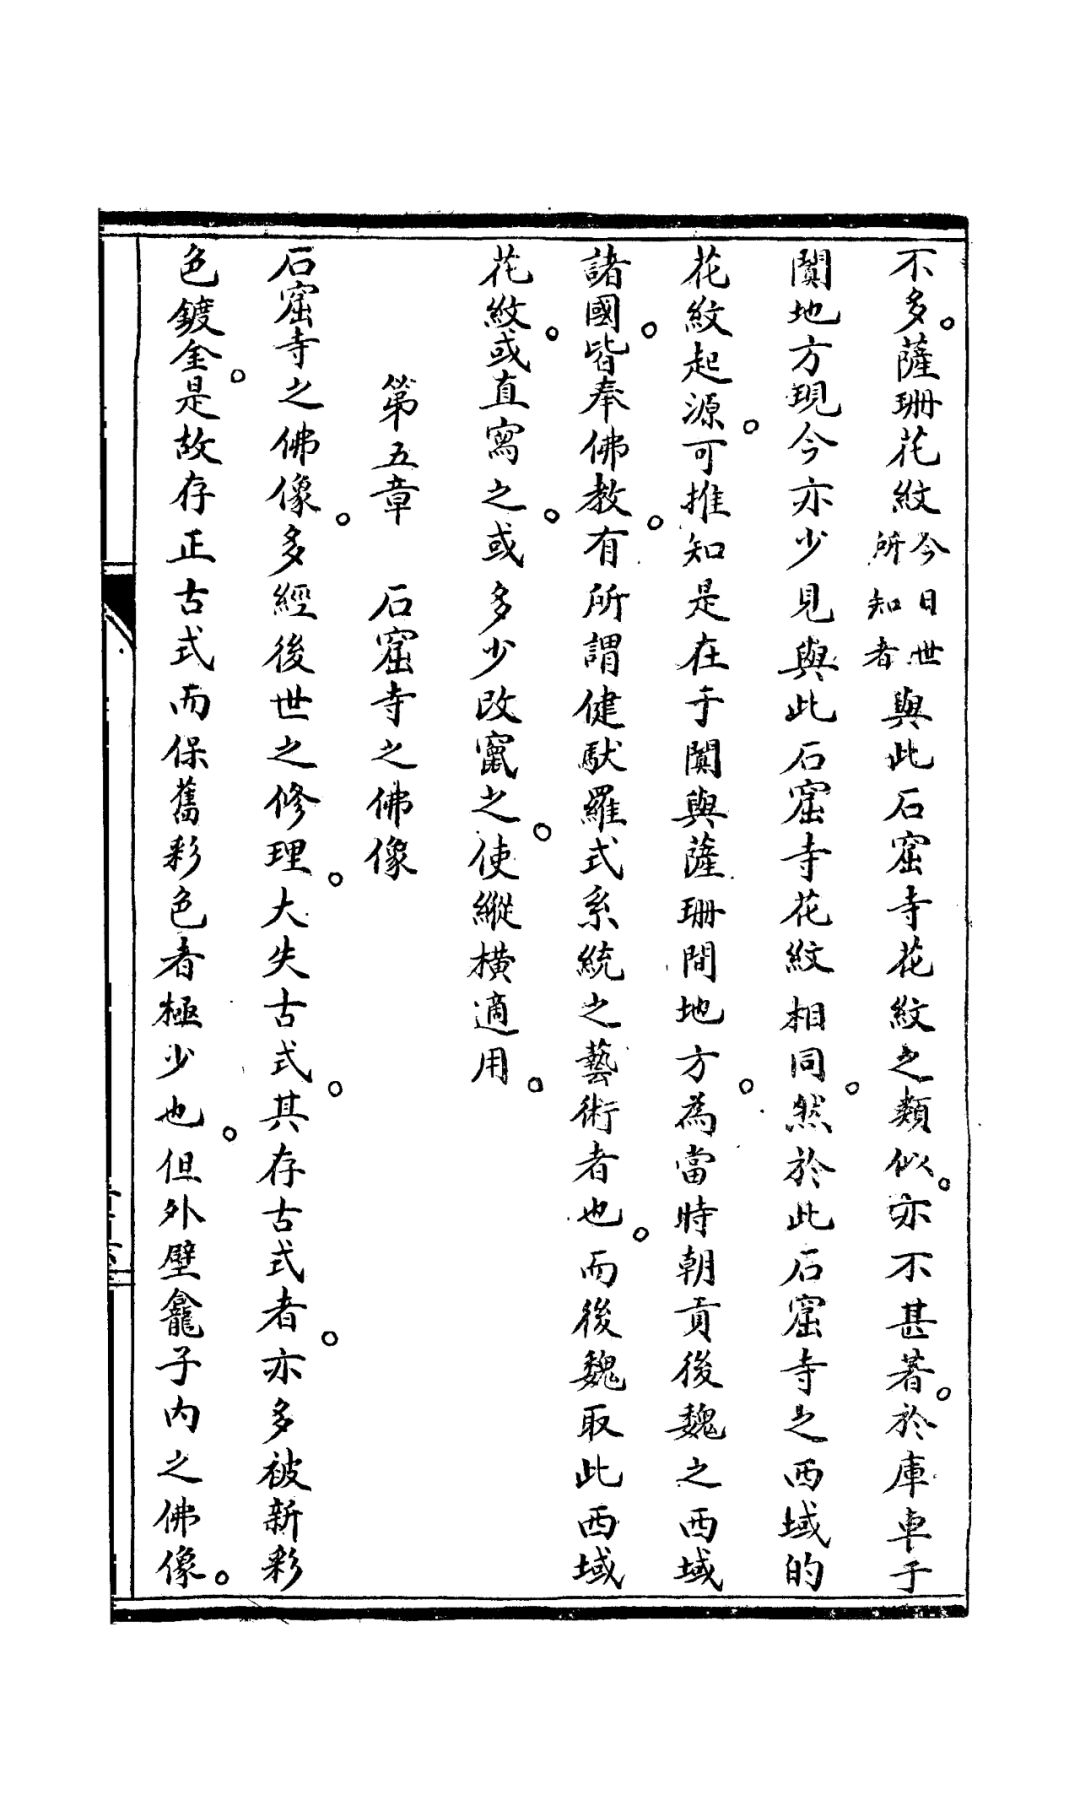 不多。薩珊花紋今日世所知者與此石窟寺花紋之類似。亦不甚著。於庫車于
闐地方現今亦少見與此石窟寺花紋相同。然於此石窟寺之西域的
花紋起源。可推知是在于闐與薩珊間地方。為當時朝貢後魏之西域
諸國。皆奉佛教。有所謂健馱羅式系統之藝術者也。而後魏取此西域
花紋。或直寫之。或多少改竄之。使縱橫適用。
第五章　石窟寺之佛像
石窟寺之佛像。多經後世之修理。大失古式。其存古式者。亦多被新彩
色鍍金。是故存正古式而保舊彩色者極少也。但外壁龕子內之佛像。